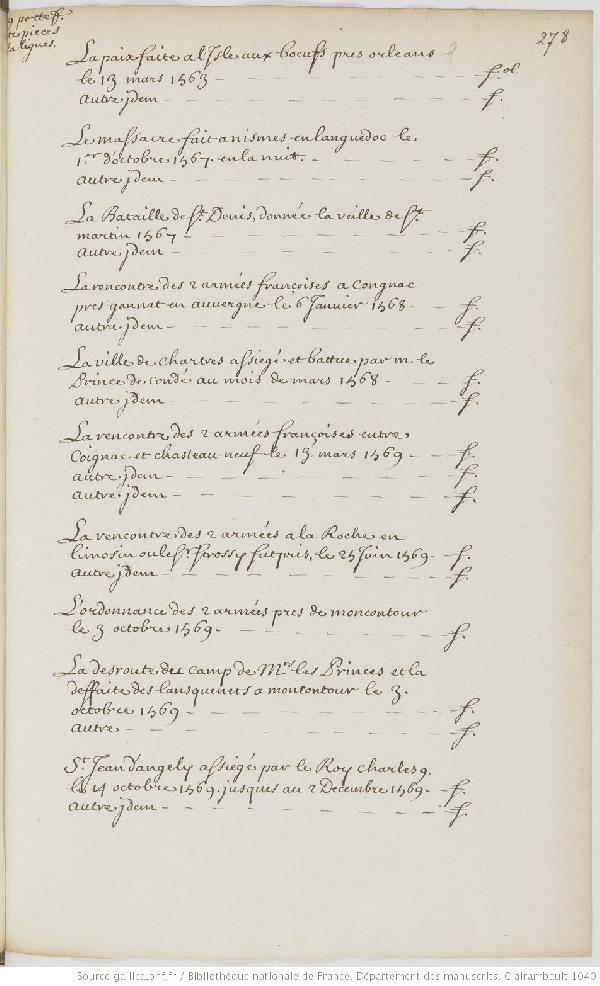 g porte f.
te pieces
la ligues.
278
La paix faite a l'Isle aux boeufs pres orleans
le 13 mars 1563 - f.ol
autre jdem - f.
Le massacre fait a nismes en languedoc le
1.er d'octobre 1567. en la nuit. - f.
autre jdem - f.
La Bataille de St. Denis, donnée la veille de St.
martin 1567 - f.
autre jdem - f.
La rencontre des 2 armées françoises a Congnac
pres gannat en auvergne le 6 Janvier 1568 - f.
autre jdem - f.
La ville de chartres assiegé et battue par m. le
Prince de condé au mois de mars 1568 - f.
autre jdem - f.
La rencontre des 2 armées françoises entre
Coignac et chasteau neuf le 13 mars 1569 - f.
autre jdem - f.
autre jdem - f.
La rencontre des 2 armées a la Roche en
limosin ou le Sr. Strossy fut pris, le 25 Juin 1569 - f.
autre jdem - f.
L'ordonnance des 2 armées pres de moncontour
le 3 octobre 1569 - f.
La desroute du camp de Mrs. les Princes et la
deffaite des lansquenets a montontour le 3.
octobre 1569 - f.
autre - f.
St. Jean d'angely assiegé par le Roy charles 9.
le 14 octobre 1569. jusques au 2 Decembre 1569 - f.
autre jdem - f.
Source gallica.bnf.fr / Bibliothèque nationale de France. Département des manuscrits. Clairambault 1040